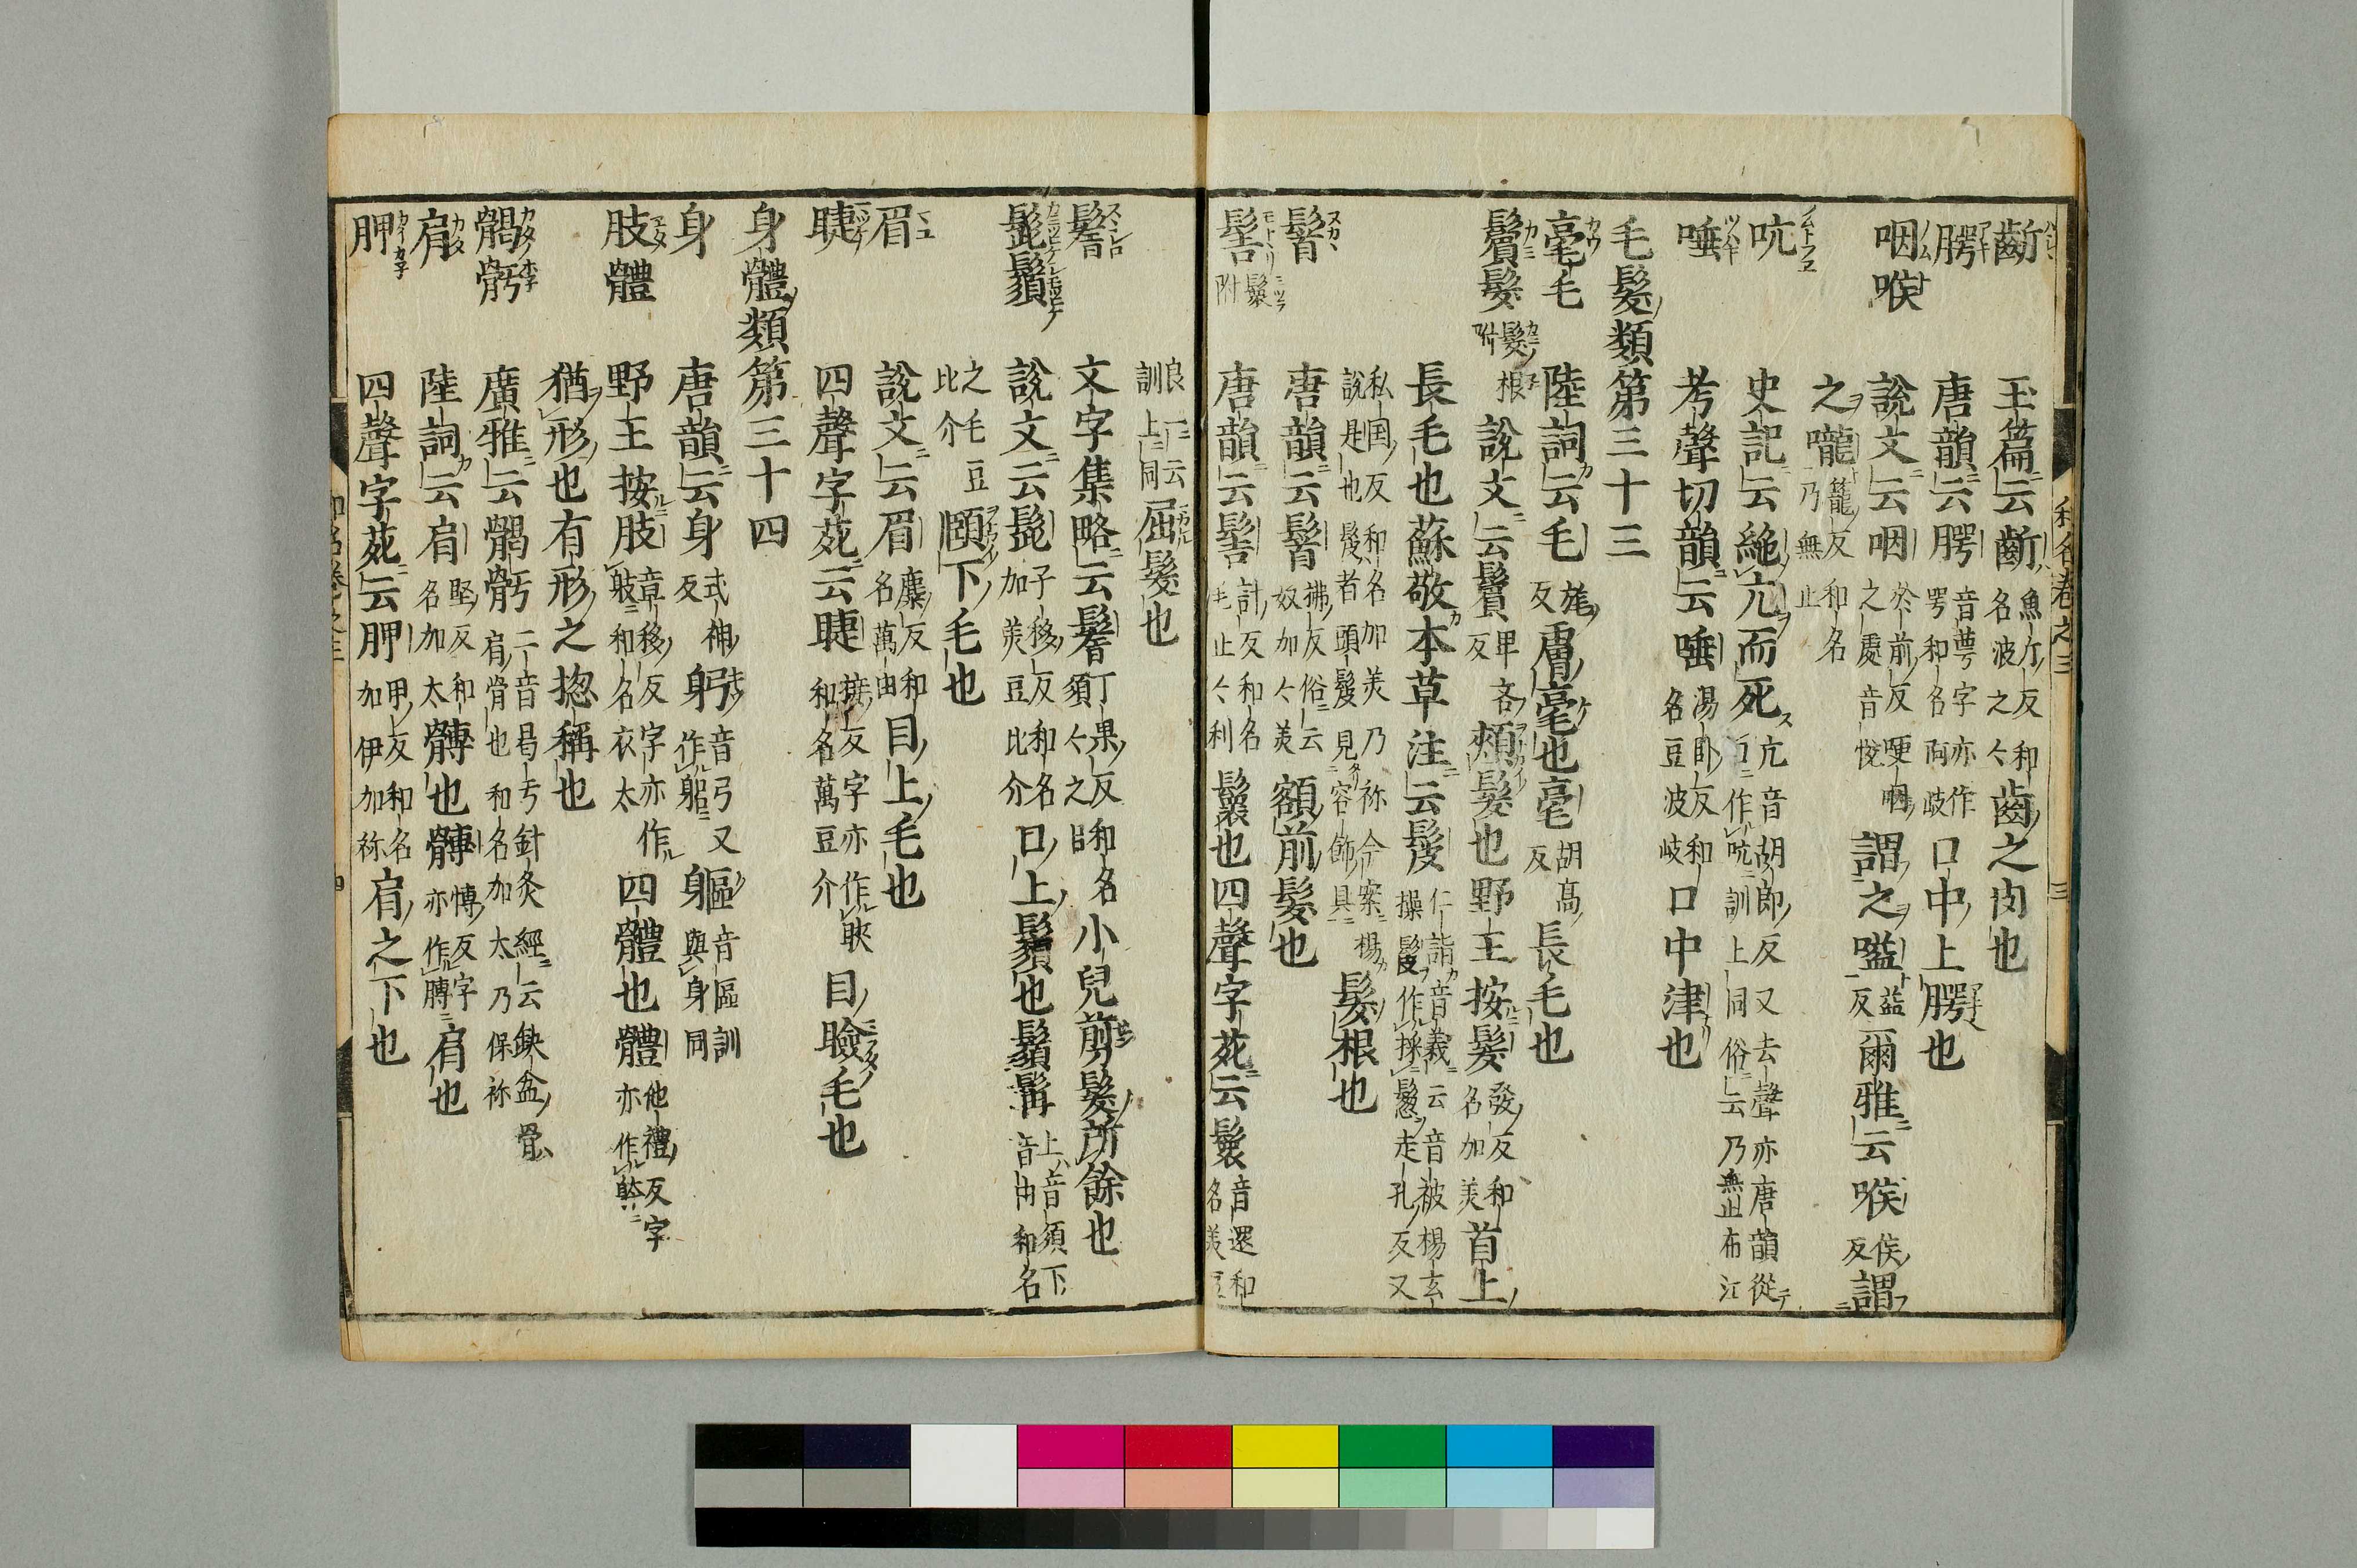 齗 玉篇云齗魚斤反和名波之々齒之肉也
腭 唐韻云腭音萼字亦作咢和名阿岐口中上腭也
咽喉 說文云咽於前反哽咽之處音悅謂之嗌音益反爾雅云喉侯反謂
之嚨籠反和名乃無止
吭 史記云絶亢而死亢音胡郎反又去聲亦唐韻從口作吭訓上同俗云乃無止布江
唾 考聲切韻云唾湯臥反和名豆波岐口中津也
毛髮類第三十三
毫毛 陸詞云毛旄反膚毫也毫胡高反長毛也
鬢髮 髮根附 說文云鬢卑吝反頰髮也野王按髮發反和名加美首上
長毛也蘇敬本草注云髲仁諝音義云音被楊玄操髲作採髢走孔反又
私國反和名加美乃祢今案楊說是也髲者頭髮見容飾具髮根也
唐韻云拂反俗云奴加々美額前髮也
髻 鬟附 唐韻云髻計反和名毛止々利鬟也四聲字苑云鬟音還和名美豆
良訓上同一云屈髮也
文字集略云丁果反和名須々之呂小兒剪髮所餘也
髭鬚 說文云髭子移反和名加美豆比介口上鬚也鬚髯上音須下音冉和名
之毛豆比介頤下毛也
眉 說文云眉麋反和名萬由目上毛也
睫 四聲字苑云睫接反字亦作䀹和名萬豆介目瞼毛也
身體類第三十四
身 唐韻云身式神反躬音弓又作軀軀音區訓與身同
肢體 野王按肢章移反字亦作䏢和名衣太四體也體他禮反字亦作躰
猶形也有形之惣稱也
䯊骬 廣雅云䯊骬二音曷于針灸經云缺盆骨肩骨也和名加太乃保祢
肩 陸詞云肩堅反和名加太髆也髆博反字亦作膊肩也
胛 四聲字苑云胛甲反和名加伊加祢肩之下也
和名卷之三 三